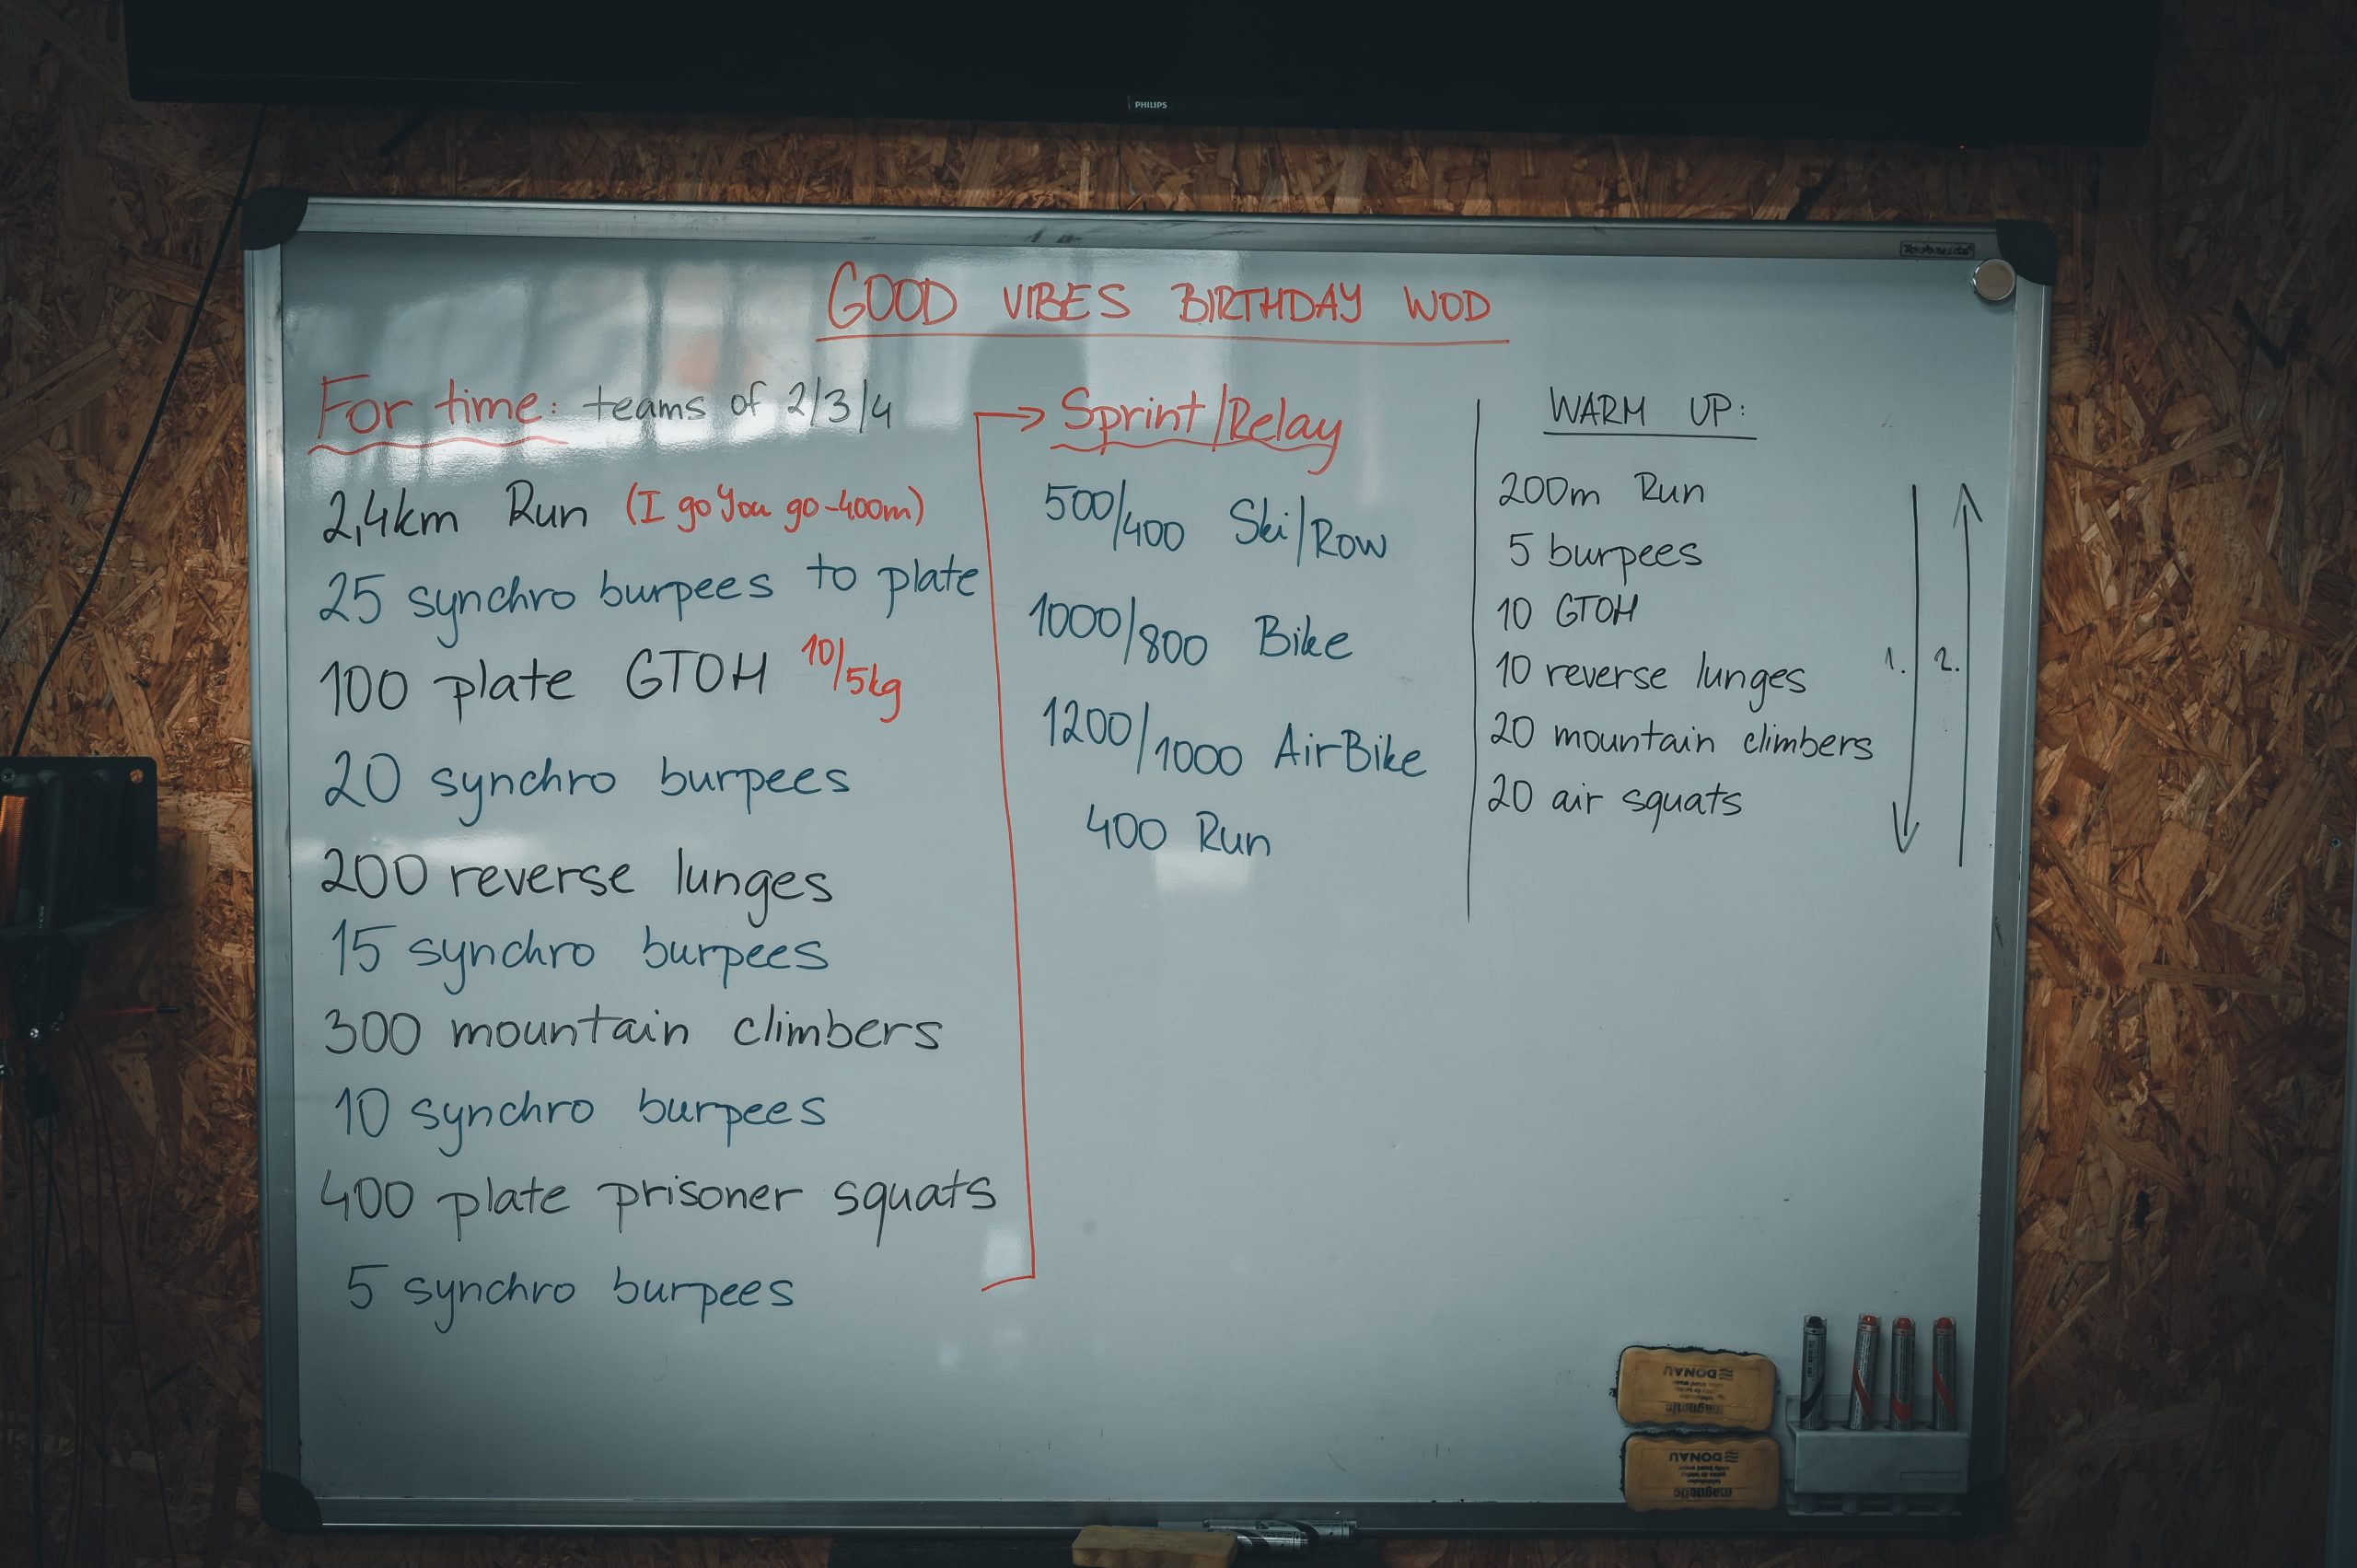 PHILIPS
GOOD VIBES BIRTHDAY WOD
For time: teams of 2/3/4
2,4km Run (I go You go -400m)
25 synchro burpees to plate
100 plate GTOH 10/5kg
20 synchro burpees
200 reverse lunges
15 synchro burpees
300 mountain climbers
10 synchro burpees
400 plate prisoner squats
5 synchro burpees
Sprint/Relay
500/400 Ski/Row
1000/800 Bike
1200/1000 AirBike
400 Run
WARM UP:
200m Run
5 burpees
10 GTOH
10 reverse lunges
20 mountain climbers
20 air squats
1. 2.
DONAU
magnetic
DONAU
magnetic